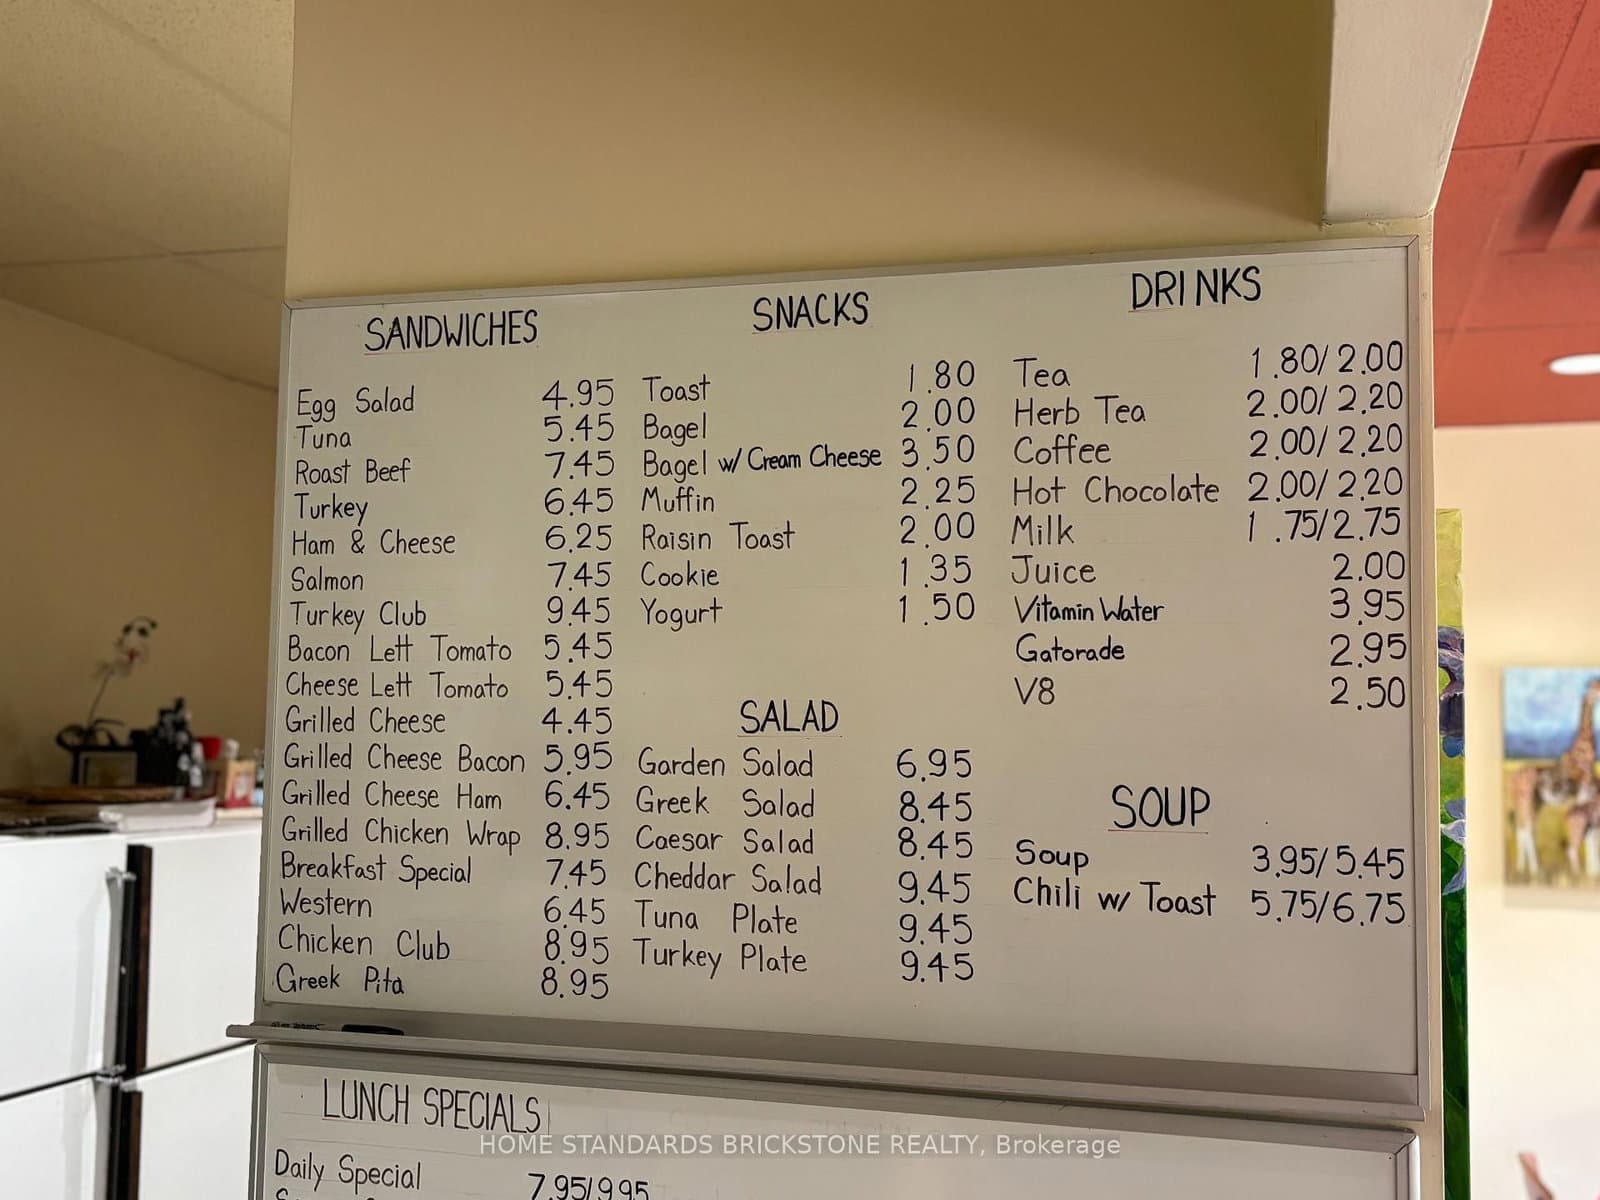 SANDWICHES
Egg Salad 4.95
Tuna 5.45
Roast Beef 7.45
Turkey 6.45
Ham & Cheese 6.25
Salmon 7.45
Turkey Club 9.45
Bacon Lett Tomato 5.45
Cheese Lett Tomato 5.45
Grilled Cheese 4.45
Grilled Cheese Bacon 5.95
Grilled Cheese Ham 6.45
Grilled Chicken Wrap 8.95
Breakfast Special 7.45
Western 6.45
Chicken Club 8.95
Greek Pita 8.95
SNACKS
Toast 1.80
Bagel 2.00
Bagel w/ Cream Cheese 3.50
Muffin 2.25
Raisin Toast 2.00
Cookie 1.35
Yogurt 1.50
SALAD
Garden Salad 6.95
Greek Salad 8.45
Caesar Salad 8.45
Cheddar Salad 9.45
Tuna Plate 9.45
Turkey Plate 9.45
DRINKS
Tea 1.80/2.00
Herb Tea 2.00/2.20
Coffee 2.00/2.20
Hot Chocolate 2.00/2.20
Milk 1.75/2.75
Juice 2.00
Vitamin Water 3.95
Gatorade 2.95
V8 2.50
SOUP
Soup 3.95/5.45
Chili w/ Toast 5.75/6.75
LUNCH SPECIALS
HOME STANDARDS BRICKSTONE REALTY, Brokerage
Daily Special 7.95/9.95